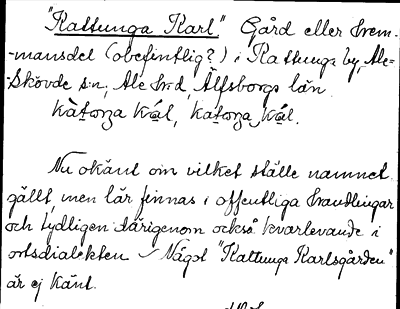 "Kattunga Karl" Gård eller hem-
-mansdel (obefintlig?) i Kattunga by, Ale-
-Skövde sn, Ale hd, Älfsborgs län.
Nu okänt om vilket ställe namnet
gällt, men lär finnas i offentliga handlingar
och tydligen därigenom också kvarlevande i
ortsdialekten. Något "Kattunga Karlsgården"
är ej känt.